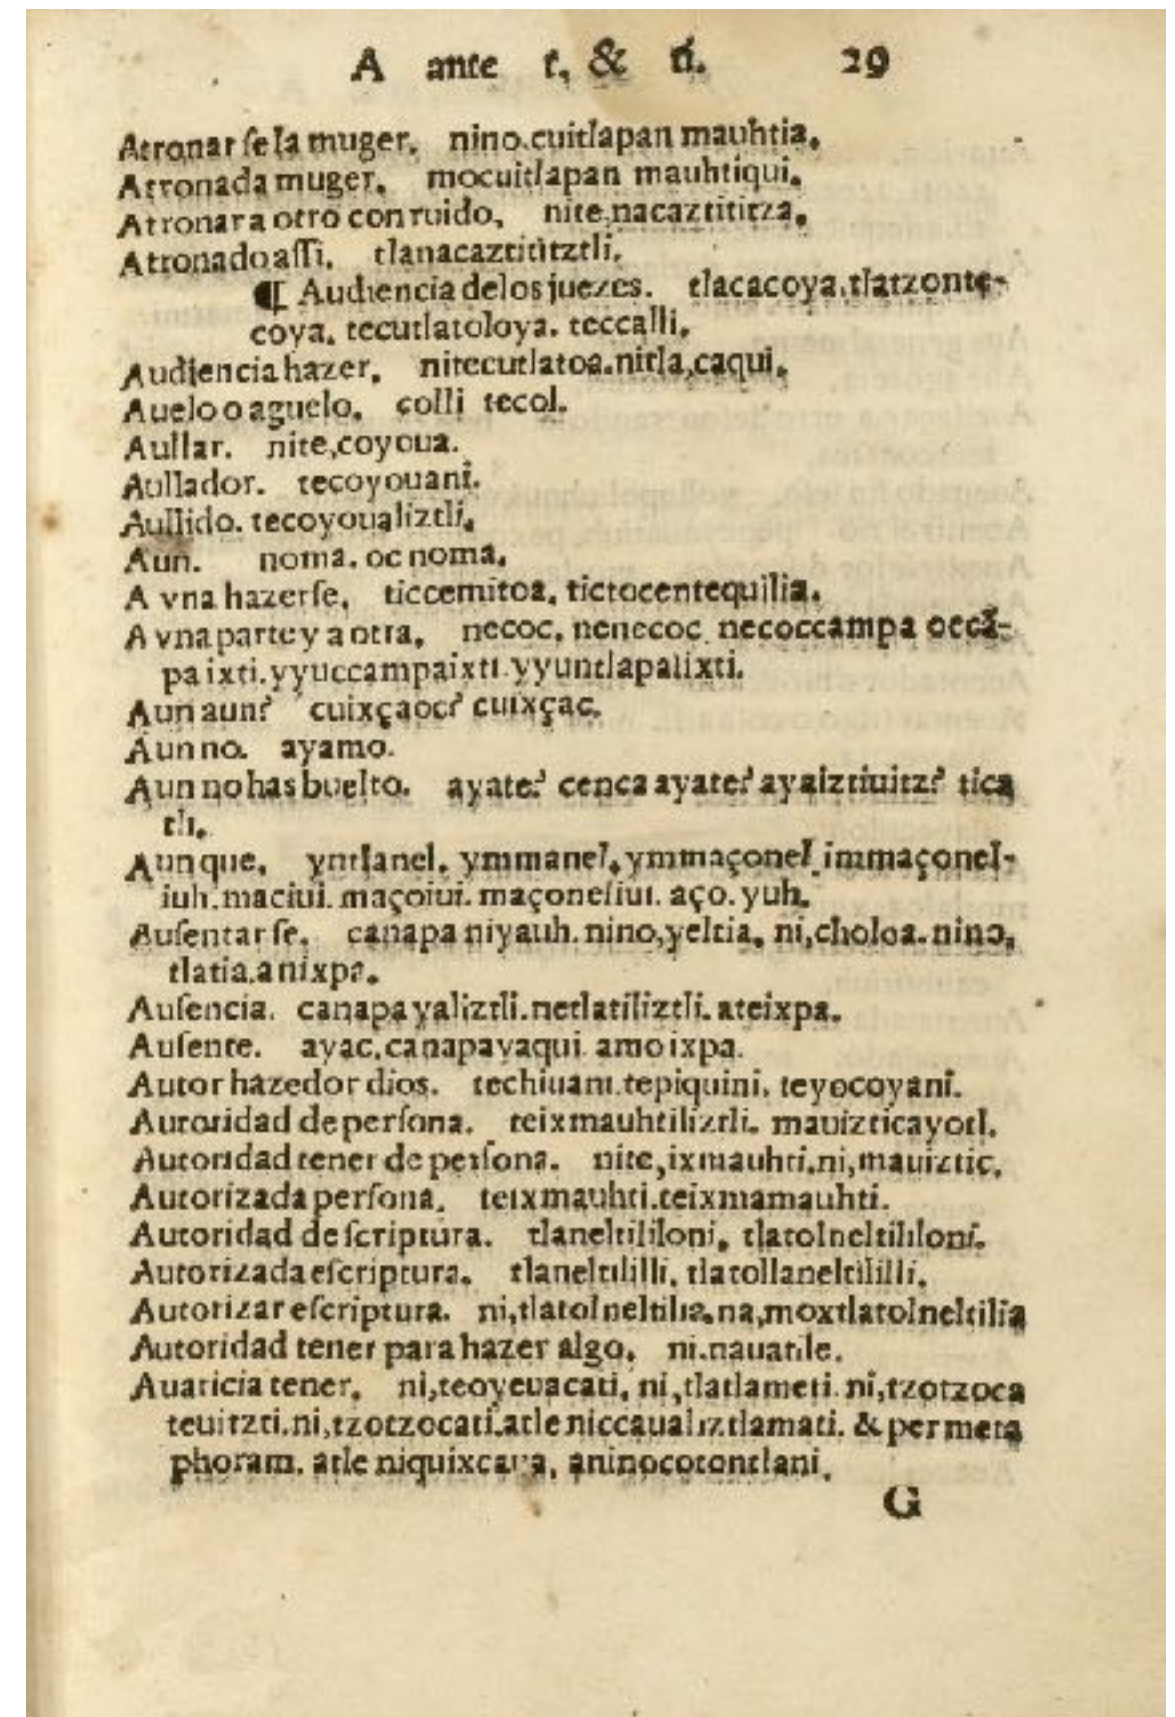 A ante t, & ú. 29
Atronar se la muger. nino.cuitlapan mauhtia.
Atronada muger. mocuitlapan mauhtiqui.
Atronar a otro con ruido, nite,nacaztititza.
Atronado assi. tlanacaztititztli.
¶ Audiencia de los juezes. tlacacoya.tlatzonte-
coya. tecutlatoloya. teccalli.
Audiencia hazer. nitecutlatoa.nitla,caqui.
Auelo o aguelo. colli tecol.
Aullar. nite,coyoua.
Aullador. tecoyouani.
Aullido. tecoyoualiztli.
Aun. noma. oc noma.
A vna hazerse. ticcemitoa. tictocentequilia.
A vna parte y a otra. necoc. nenecoc necoccampa occã-
pa ixti.yyuccampaixti.yyuntlapalixti.
Aun aun? cuixçaoc? cuixçac.
Aun no. ayamo.
Aun no has buelto. ayate? cenca ayate? ayaiztiuitz? tica
th.
Aunque. yntlanel. ymmanel.ymmaçonel.immaçonel-
iuh.maciui.maçoiui.maçoneliui. aço.yuh.
Ausentarse. canapa niyauh.nino,yeltia. ni,choloa.nino,
tlatia.anixpa.
Ausencia. canapayaliztli.netlatiliztli.ateixpa.
Ausente. ayac.canapayaqui.amoixpa.
Autor hazedor dios. techiuani.tepiquini. teyocoyani.
Autoridad de persona. teixmauhtiliztli. mauizticayotl.
Autoridad tener de persona. nite,ixmauhti.ni,mauiztic.
Autorizada persona. teixmauhti.teixmamauhti.
Autoridad de scriptura. tlaneltililoni. tlatolneltililoni.
Autorizada escriptura. tlaneltililli. tlatollaneltililli.
Autorizar escriptura. ni,tlatolneltilia.na,moxtlatolneltilia
Autoridad tener para hazer algo. ni.nauatile.
Auaricia tener. ni,teoyeuacati. ni,tlatlameti.ni,tzotzoca
teuitzti.ni,tzotzocati.atle niccaualiztlamati. & per meta
phoram. atle niquixcaua. aninocotontlani.
G